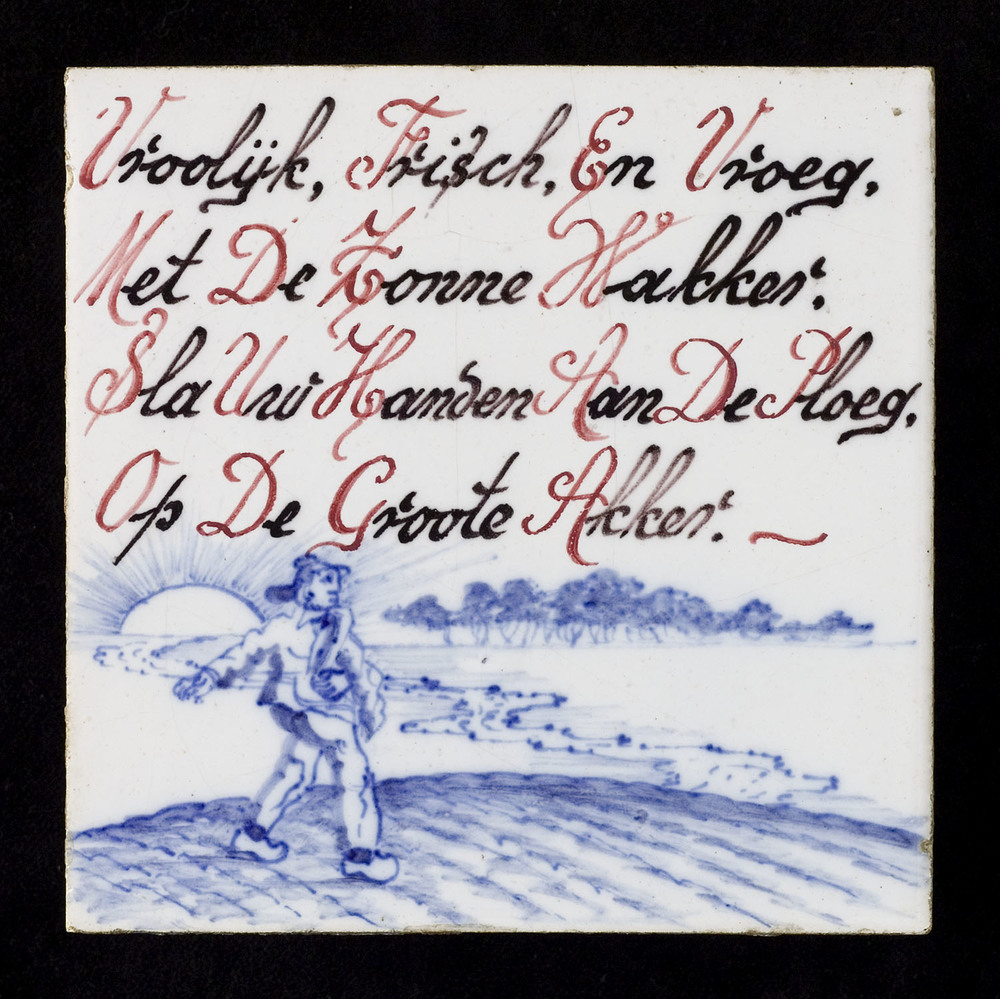 Vroolijk, Frisch, En Vroeg,
Met De Zonne Wakker.
Sla Uw Handen Aan De Ploeg,
Op De Groote Akker. ~